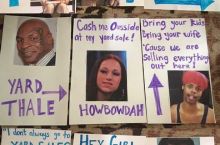 YARD
THALE
Cash me Ousside
at my yard sale!
HOWBOWDAH
Bring your kids
Bring your wife
'Cause we are
selling everything
out here!
"I don't always go to
HEY GIRL